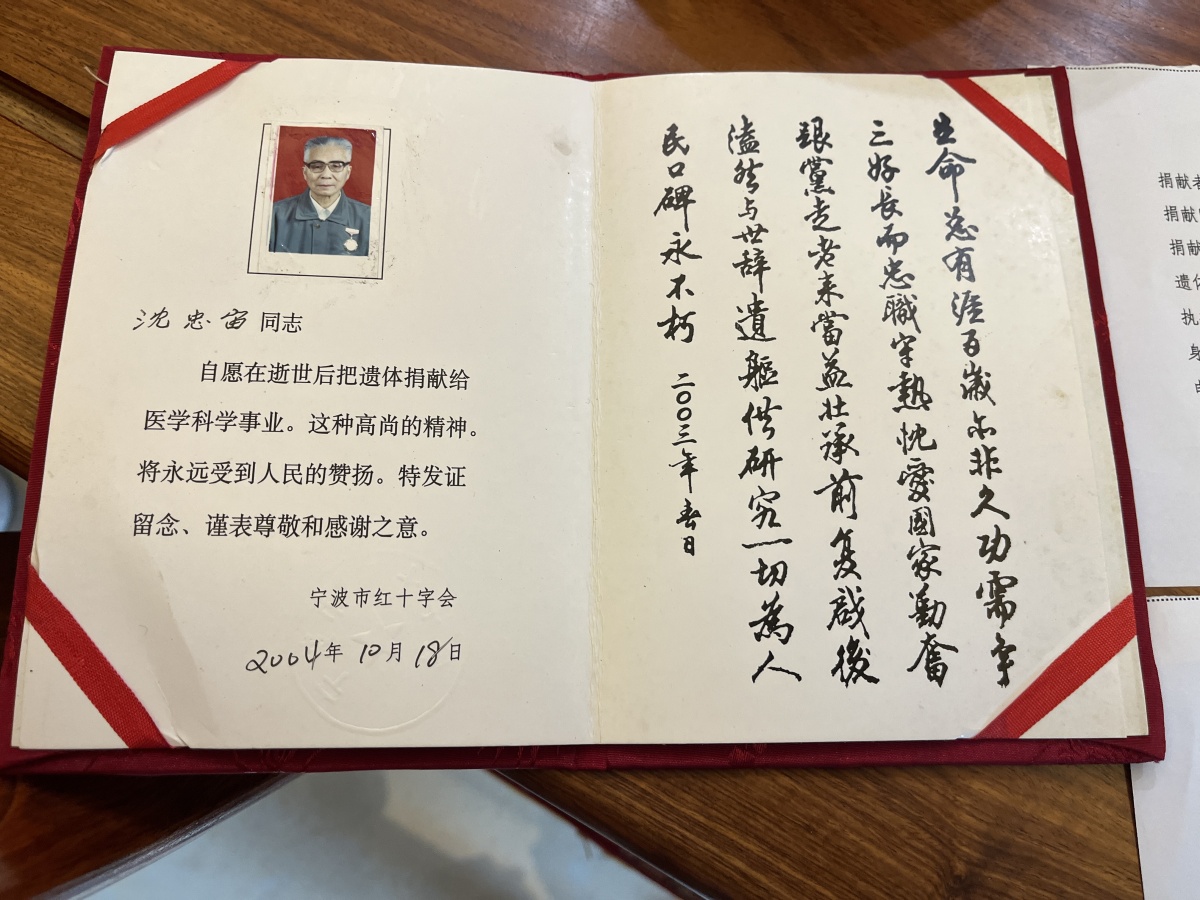 沈忠宙 同志
自愿在逝世后把遗体捐献给
医学科学事业。这种高尚的精神。
将永远受到人民的赞扬。特发证
留念、谨表尊敬和感谢之意。
宁波市红十字会
2004年 10月 18日
生命总有涯百歲亦非久功需争
三好長而忠職守熱忱愛國家勤奮
跟黨走老来當益壮承前复啟後
溘然与世辞遺軀供研究一切為人
民口碑永不朽 二〇〇三年春日
捐献者
捐献
捐献
遗体
执